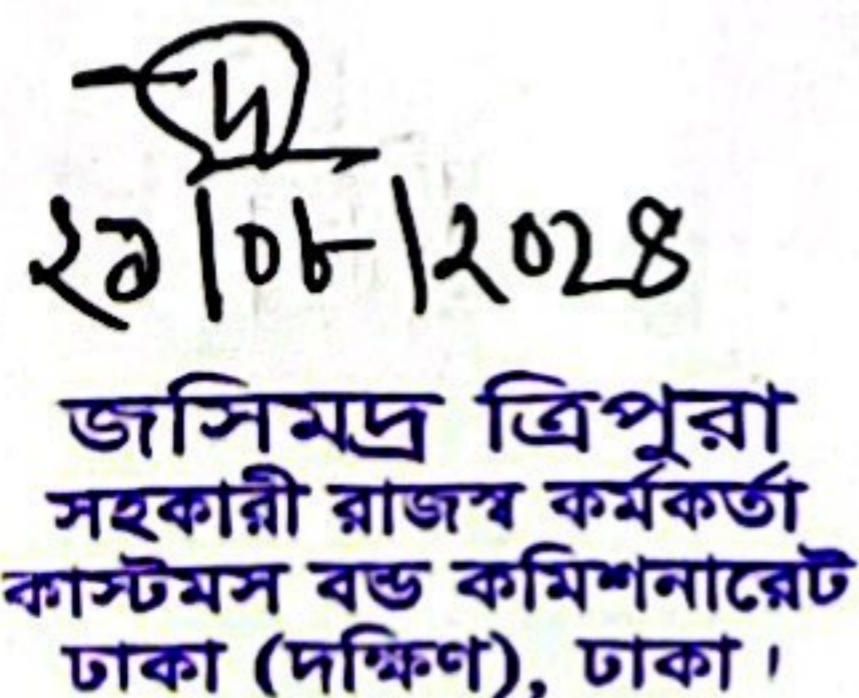 ২৯/০৮/২০২৪
জসিমদ্র ত্রিপুরা
সহকারী রাজস্ব কর্মকর্তা
কাস্টমস বন্ড কমিশনারেট
ঢাকা (দক্ষিণ), ঢাকা।